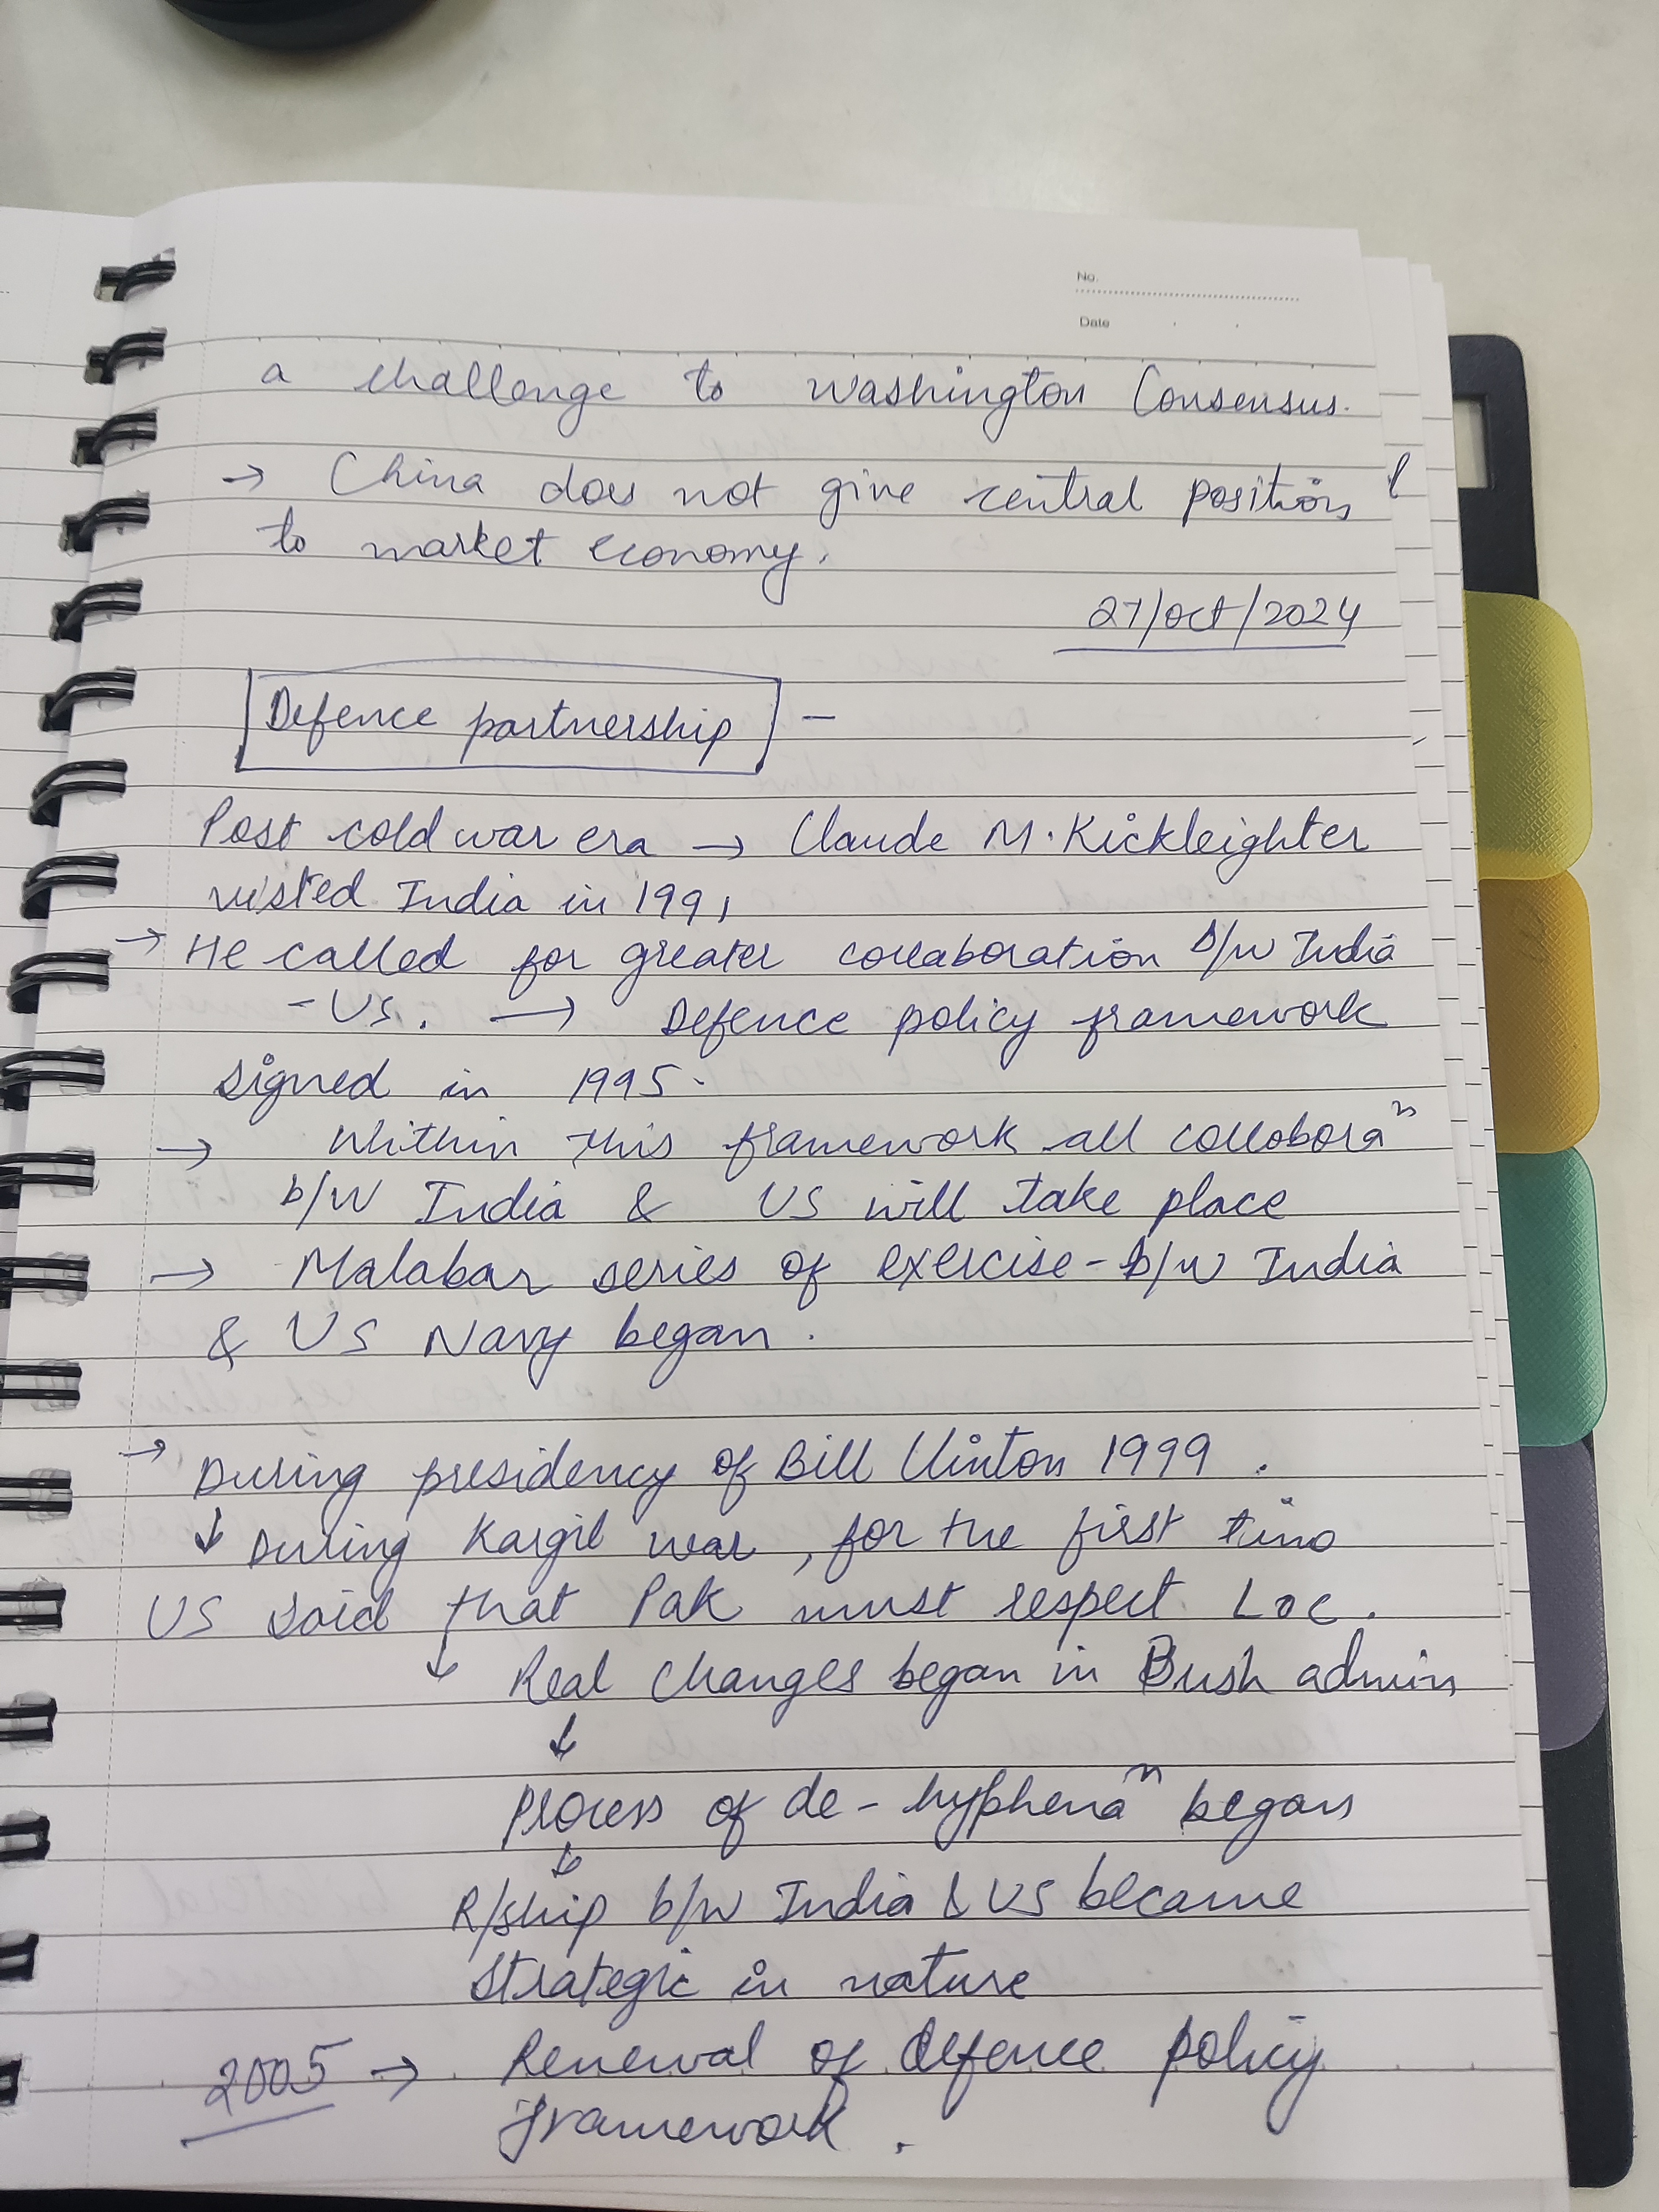 No.
Date
a challenge to Washington Consensus.
→ China does not give central position
to market economy.
27/Oct/2024
Defence partnership -
Post cold war era → Claude M. Kickleighter
visted India in 1991
→ He called for greater collaboration b/w India
- US. → Defence policy framework
signed in 1995.
→ Within this framework all collobora^n
b/w India & US will take place
→ Malabar series of exercise - b/w India
& US Navy began.
→ During presidency of Bill Clinton 1999.
↓ During Kargil war, for the first time
US said that Pak must respect LOC.
↓ Real changes began in Bush admin
↓
Process of de-hyphena^n began
↓
R/ship b/w India & US became
strategic in nature
2005 → Renewal of defence policy
framework.